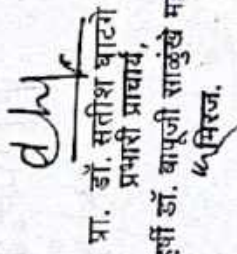 प्रा. डॉ. सतीश घाटगे
प्रभारी प्राचार्य,
डॉ. बापूजी साळुंखे
मिरज.